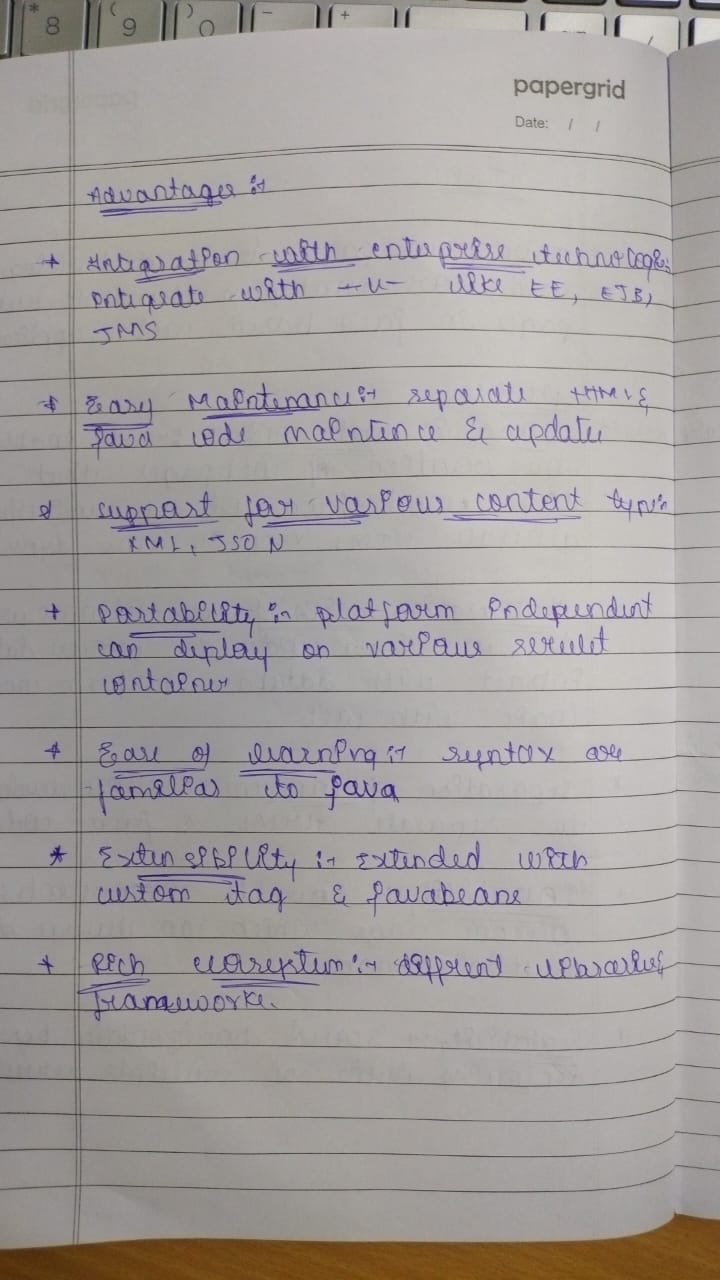 * 8
( 9
) 0
-
+
papergrid
Date: / /
Advantages :-
* Integration with enterprise technologies
integrate with —u— like EE, EJB,
JMS
* Easy Maintenance :- separate HTML &
java code maintince & update
* support for various content type :-
XML, JSON
* Portability :- platform independent
can deploy on various servlet
container
* Ease of learning :- syntax are
familiar to java
* Extensibility :- Extended with
custom tag & javabeans
* Rich ecosystem :- diffrent libraries,
frameworks.